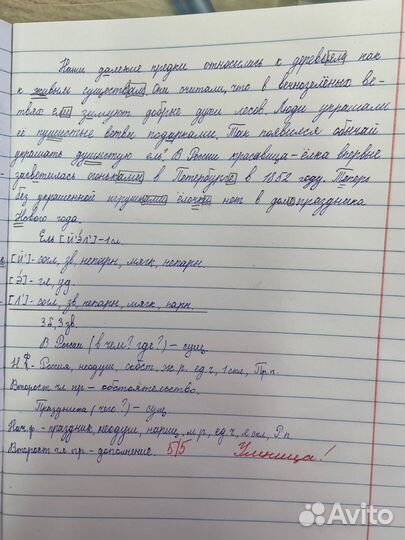 Наши далекие предки относились к деревьям как
к живым существам. Они считали, что в вечнозелёных ве-
твях ели зимуют добрые духи лесов. Люди украшали
её пушистые ветви подарками. Так появился обычай
украшать душистую ель. В России красавица-ёлка впервые
засветилась огоньками в Петербурге в 1852 году. Теперь
без украшенной игрушками ёлочки нет в дом праздника
Нового года.
Ель [й'э́л']-1сл.
[й']-согл, зв, непарн, мягк, непарн.
[э́]-гл, уд.
[л']-согл, зв, непарн, мягк, парн.
3б, 3зв.
В России (в чем? где?)-сущ.
Н.Ф.-Россия, неодуш, собст, ж.р. ед.ч, 1скл, Пр.п.
Второст чл. пр-обстоятельство.
Праздника (чего?)-сущ
Нач.ф.-праздник, неодуш, нариц, м.р, ед.ч, 2скл, Р.п.
Второст чл. пр-дополнение. 5/5 Умница!
Avito